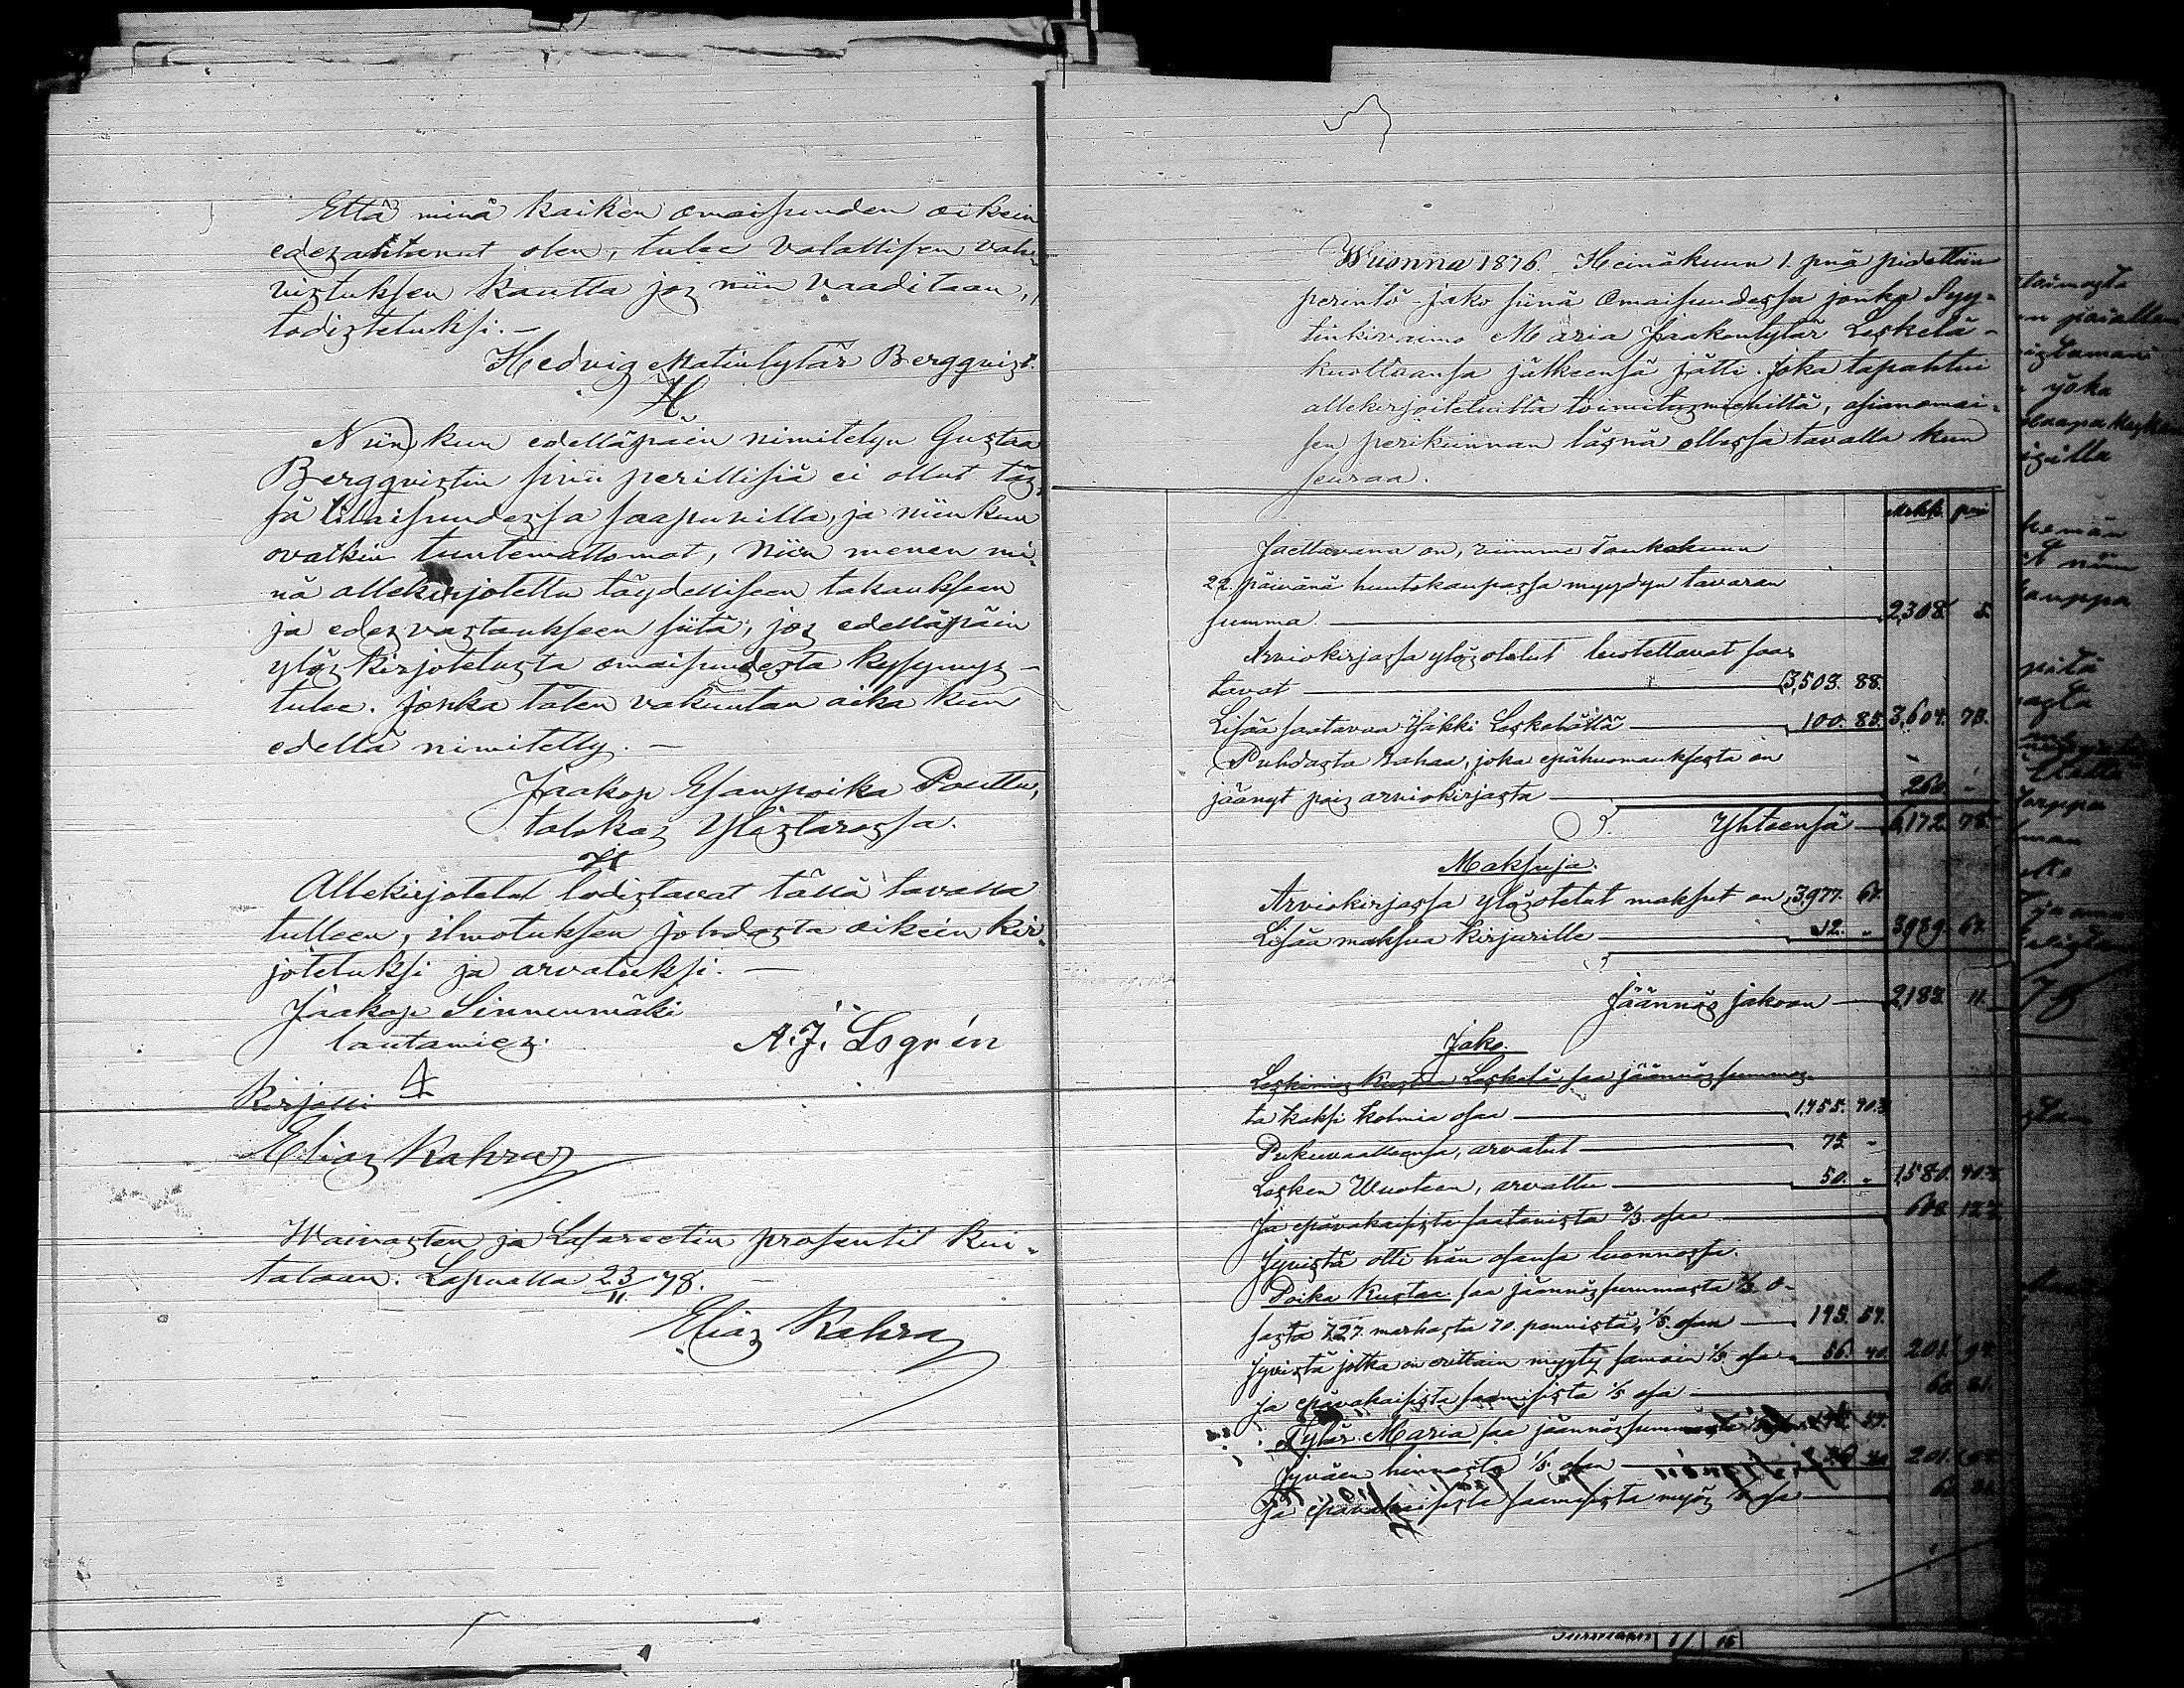 Että minä kaiken omaisuuden oikein
edesantanut olen, tulee valallisen vah-
vistuksen kautta jos niin vaaditaan,
todistetuksi. –
Hedvig Matintytär Bergqvist.
H
Niin kun edelläpäin nimitetyn Gustaa
Bergqvistin sivu perillisiä ei ollut täs-
sä tilaisuudessa saapuvilla, ja niinkuin
ovatkin tuntemattomat, niin menen mi-
nä allekirjotettu täydelliseen takaukseen
ja edesvastaukseen siitä, jos edelläpäin
ylöskirjotetusta omaisuudesta kysymys –
tulee. Jonka täten vakuutan aika kuin
edellä nimitetty. –
Jaakop Esanpoika Pouttu,
talokas Ylistarossa.
Allekirjotetut todistavat tällä tavalla
tulleen, ilmotuksen johdosta oikein kir-
jotetuksi ja arvatuksi. –
Jaakop Sinnenmäki
lautamies.
A. J. Logrén
Kirjotti
Elias Kahra
Waivasten ja Lasareetin prosentit kui-
tataan. Lapualla 23/11 78.
Elias Kahra
Wuonna 1876. Heinäkuun 1. pnä pidettiin
perintö-jako siinä Omaisuudessa jonka Syy-
tinkivaimo Maria Jaakontytär Leskelä –
kuoltuansa jälkeensä jätti. Joka tapahtui
allekirjoitetuilta toimitusmiehiltä, asianomai-
sen perikunnan läsnä ollessa tavalla kun
seuraa.
Mrkk. pni
Jaettavana on, viimme Toukokuun
22. päivänä huutokaupassa myydyn tavaran
summa. 2,308. 5.
Arviokirjassa ylösotetut luotettavat saa-
tavat 3,503. 88.
Lisää saatavaa Jaakki Leskelältä 100. 85. 3,604. 73.
Puhdasta rahaa, joka epähuomauksesta on
jäänyt pois arviokirjasta 260. –
Yhteensä 6,172. 78.
Maksuja.
Arviokirjassa ylösotetut maksut on 3,977. 67.
Lisää maksua kirjurille 12. „ 3,989. 67.
Jäännös jakoon 2,183. 11.
Jako.
Leskimies Kustaa Leskelä saa jäännössummas-
ta kaksi kolmia osaa 1,455. 40.
Pukuvaatteensa, arvatut 75 „
Lesken Wuoteen, arvattu 50. „ 1,580. 40.
Ja epävakaisista saatavista 2/3 osaa
Jyvistä otti hän osansa luonnossa.
Poika Kustaa saa jäännössummasta 1/3 O-
sasta 727. markasta 70. pennistä, 1/5. osan 145. 54.
Jyvistä jotka on erittäin myyty samoin 1/5 osa 56. 40. 201. 94.
ja epävakaisista saamisista 1/5 osa
Tytär Maria saa jäännössummasta
Jyväin hinnasta 1/5 osan 56 40 201. 94.
Ja epävakaisista saamisista myös 1/5 osa